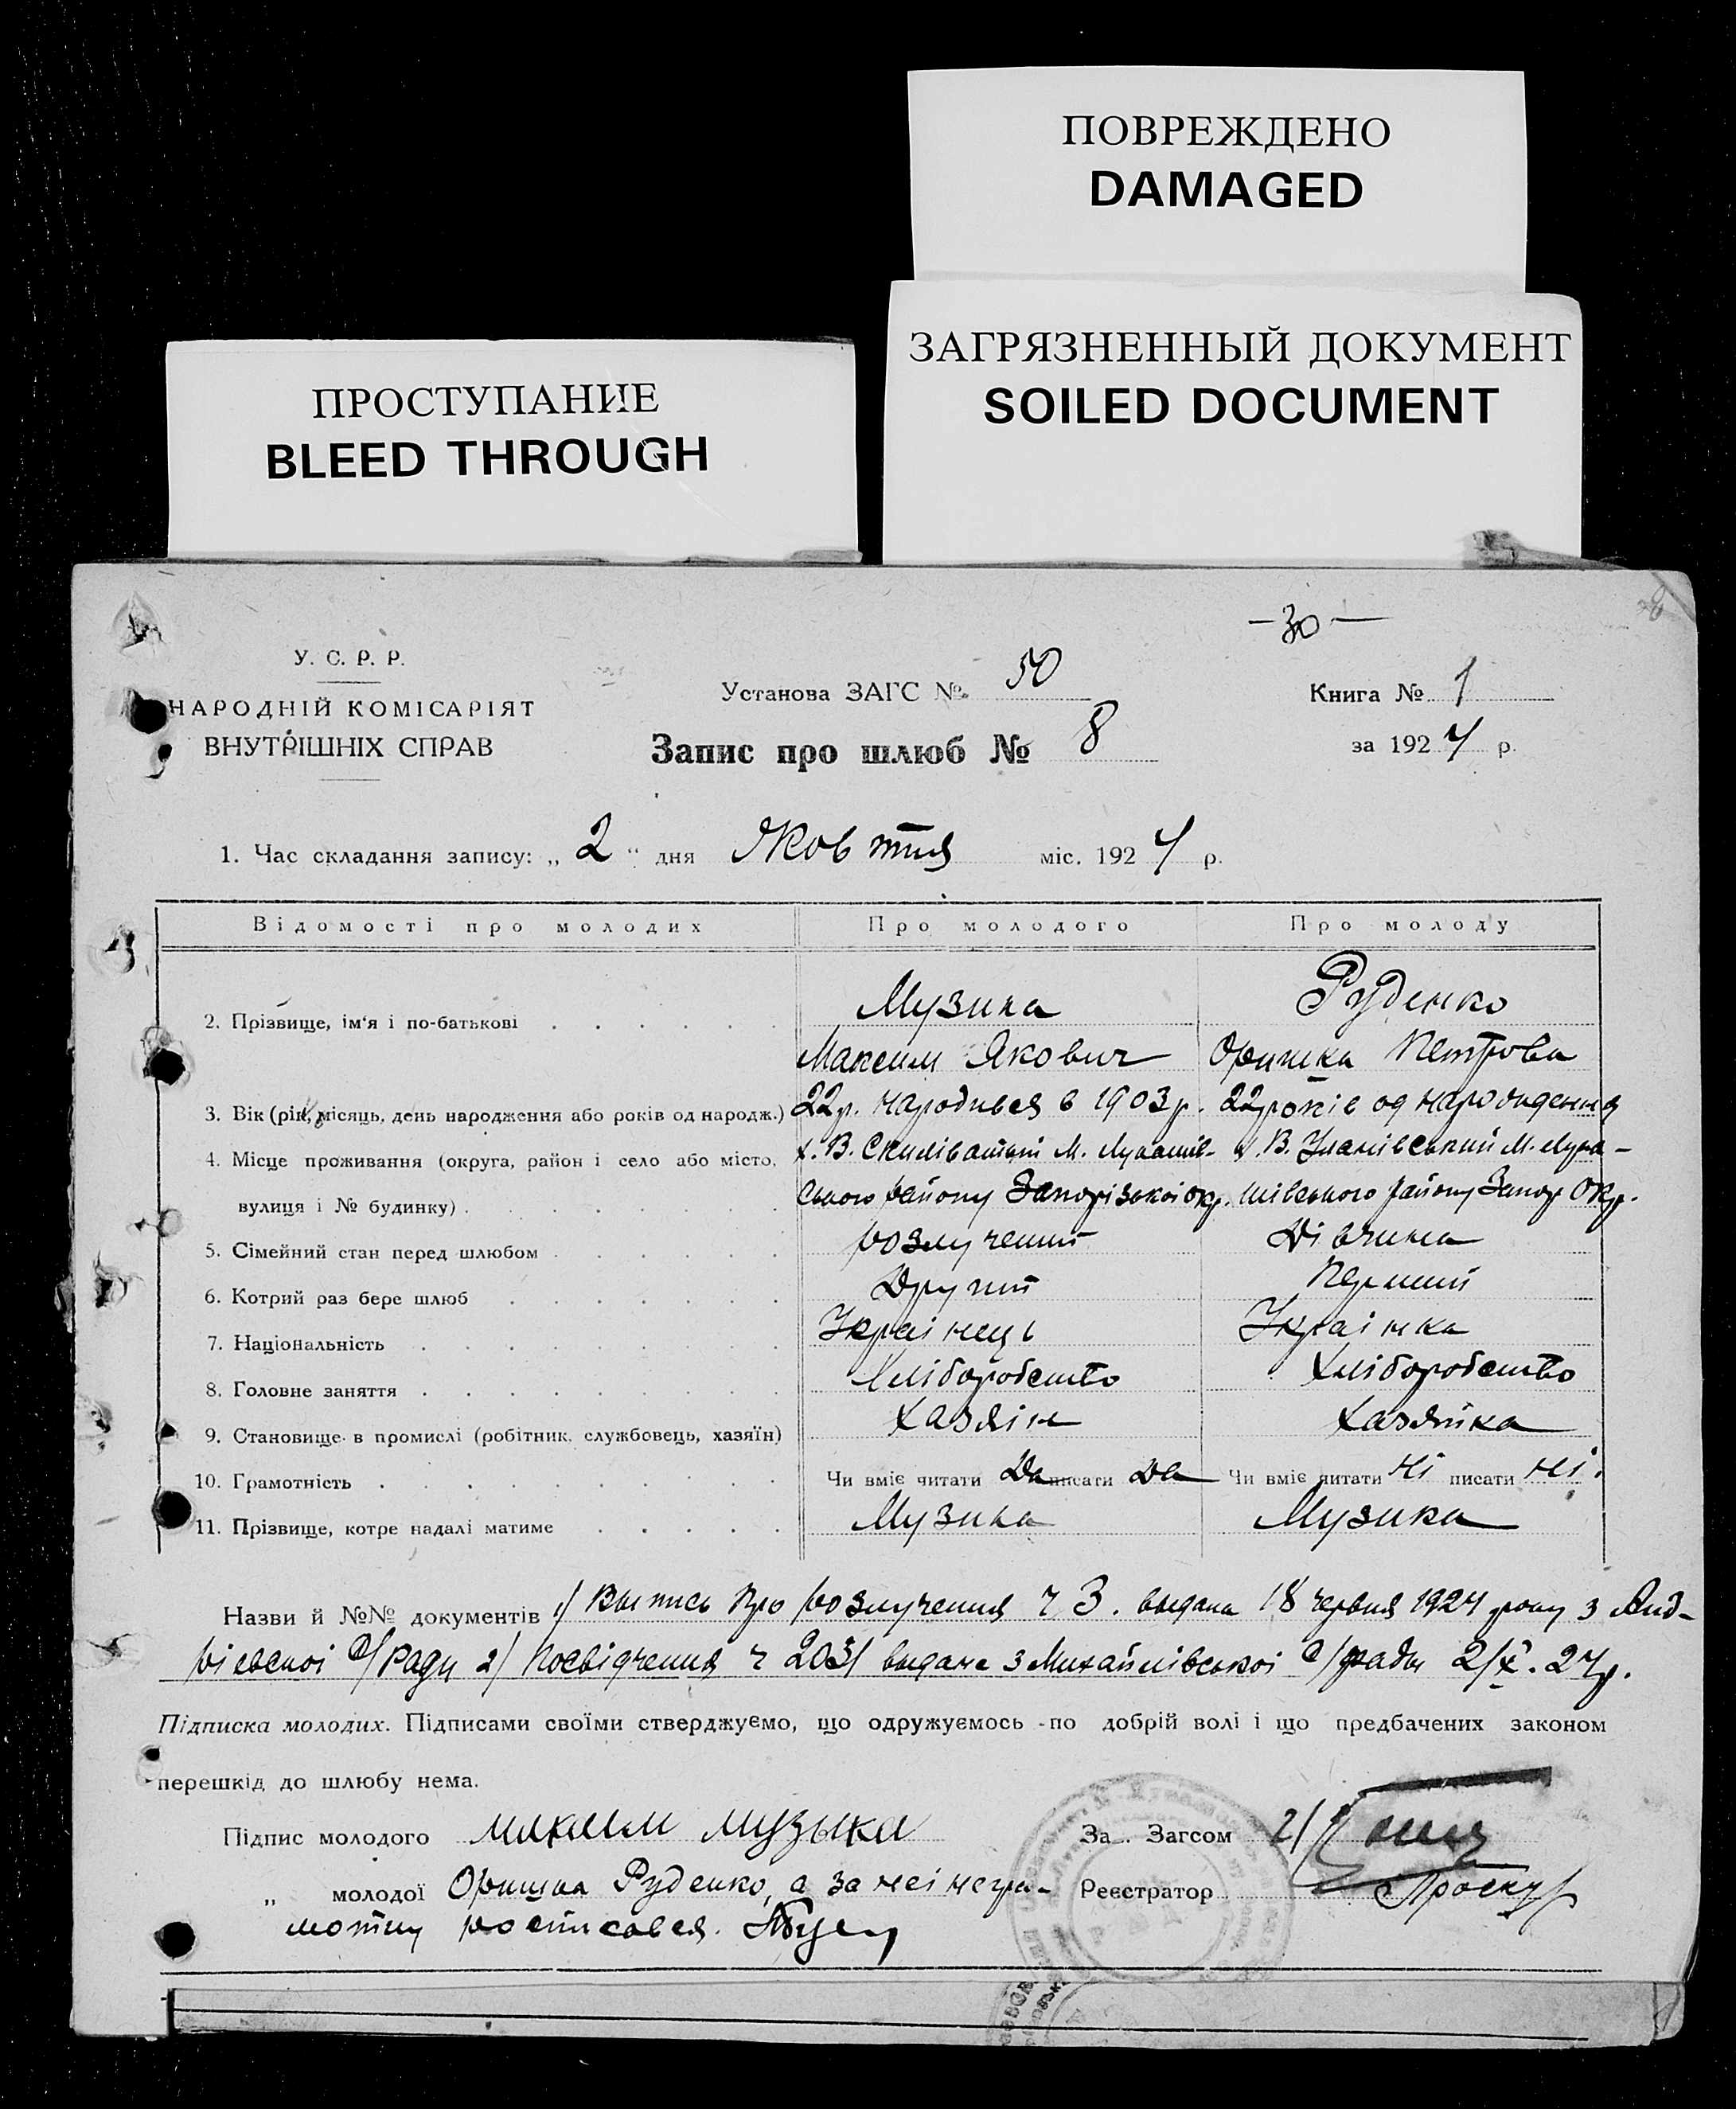 ПОВРЕЖДЕНО
DAMAGED
ЗАГРЯЗНЕННЫЙ ДОКУМЕНТ
SOILED DOCUMENT
ПРОСТУПАНИЕ
BLEED THROUGH
-30-
У. С. Р. Р.
НАРОДНІЙ КОМІСАРІЯТ
ВНУТРІШНІХ СПРАВ
Установа ЗАГС № 50
Книга № 1
Запис про шлюб № 8
за 1924 р.
1. Час складання запису: „ 2 “ дня Жовтня міс. 1924 р.
Відомості про молодих Про молодого Про молоду
2. Прізвище, ім'я і по-батькові Музика Руденко
Максим Якович Оришка Петрова
3. Вік (рік, місяць, день народження або років од народж.) 22 р. народився в 1903 р. 22 років од народження
4. Місце проживання (округа, район і село або місто, х. В. М. Лукашів- х. В. М. Лука-
вулиця і № будинку) ського району Запорізької окр. шівського району Запор Окр.
5. Сімейний стан перед шлюбом розлучений Дівчина
6. Котрий раз бере шлюб Другий Перший
7. Національність Украінець Украінка
8. Головне заняття Хліборобство Хліборобство
9. Становище в промислі (робітник, службовець, хазяїн) Хазяін Хазяйка
10. Грамотність Чи вміє читати Да писати Да Чи вміє читати Ні писати Ні.
11. Прізвище, котре надалі матиме Музика Музика
Назви й №№ документів 1/ Выпись про розлучення ч 3. выдана 18 червня 1924 року з Анд-
ріевскоі с/Ради 2/ Посвідчення ч 203/ выдане з Михайлівськоі с/ради 2/X. 24 р.
Підписка молодих. Підписами своїми стверджуємо, що одружуємось по добрій волі і що предбачених законом
перешкід до шлюбу нема.
Підпис молодого Максим Музыка За Загсом
„ молодої Оришка Руденко, а за неі негра- Реєстратор
мотну росписався.